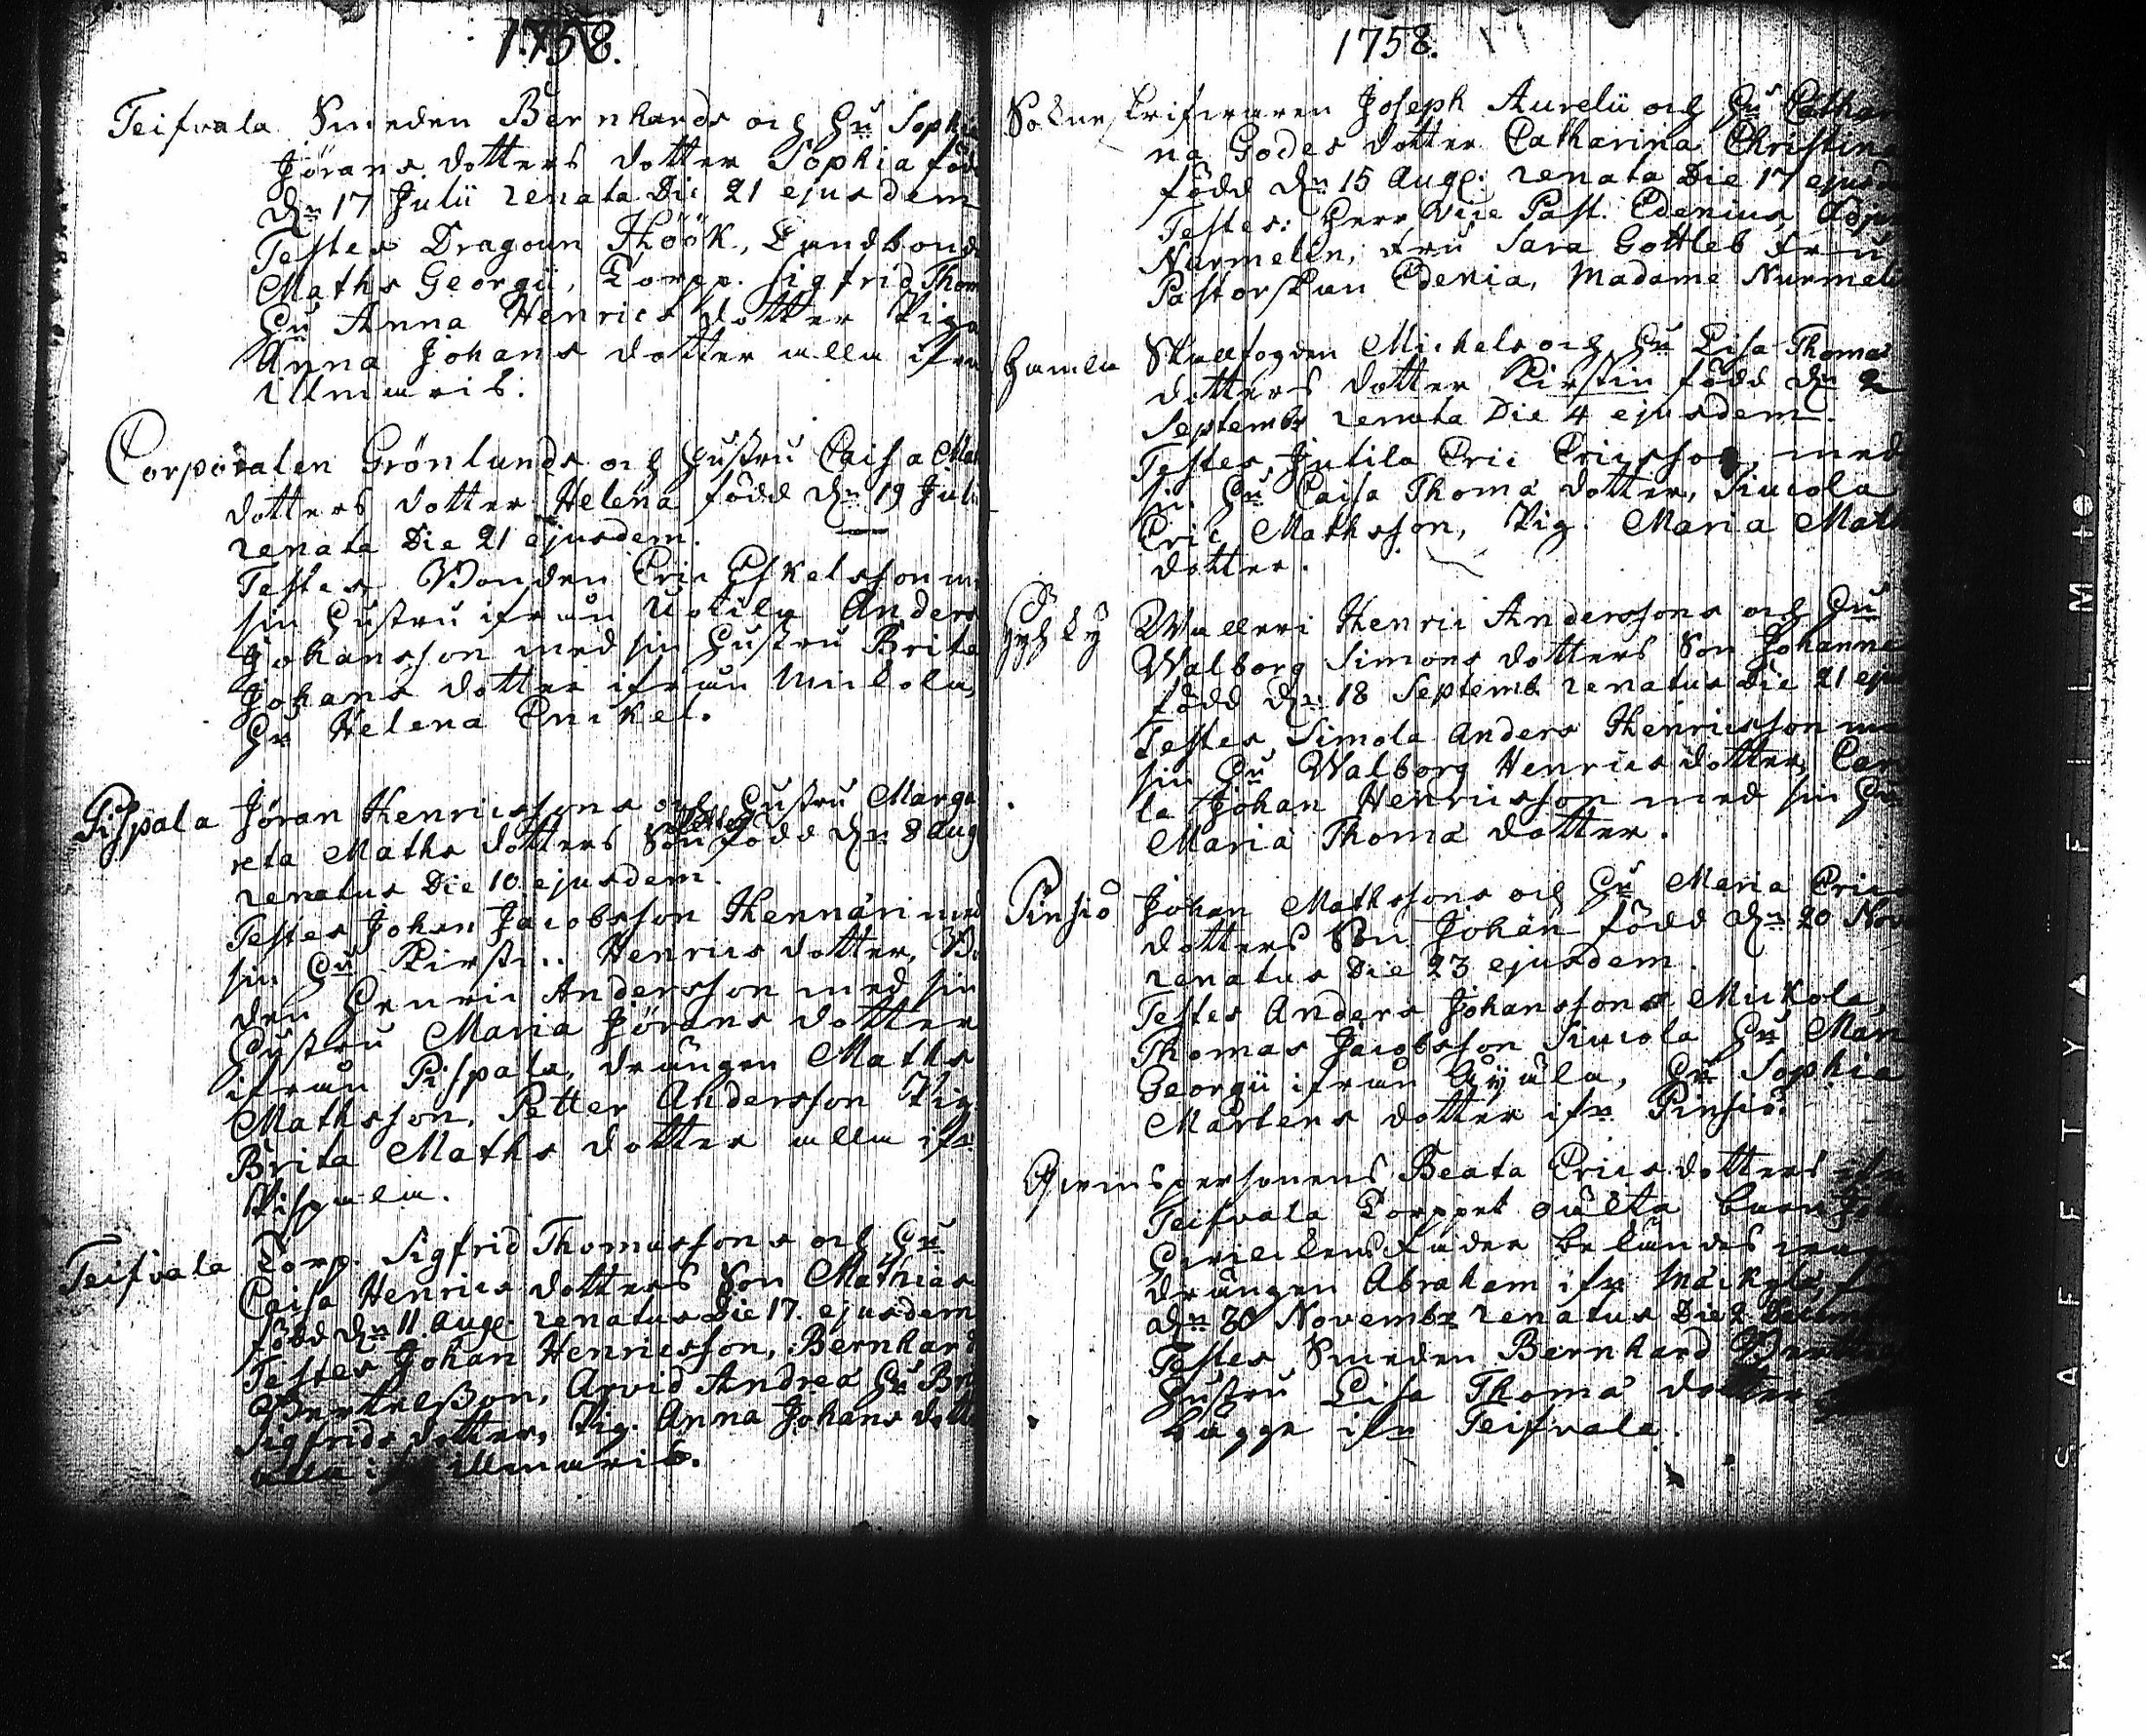 1758.
Teifvala Smeden Bernhards och Hu Sophia
Jörans dotters dotter Sophia född
dn 17 Julii renata Die 21 ejusdem
Testes Dragoun Höök, Landbond
Maths Georgii, Torpp. Sigfrid Thom
Hu Anna Henrics dotter Piga
Anna Johans dotter alla ifrån
Illmaris.
Corporalen Grönlunds och Hustru Caisa Mat
dotters dotter Helena född dn 19 Juli
renata Die 21 ejusdem.
Testes Bonden Eric Eskelsson m
sin Hustru ifrån Uotila Anders
Johansson med sin Hustru Brita
Johans dotter ifrån Mickola,
Hu Helena Enckel.
Pispala Jöran Henricssons och Hustru Marga
reta Maths dotters Son född dn 8 Aug
renatus Die 10 ejusdem.
Testes Johan Jacobsson Hennäri med
sin Hu Kirstin Henrics dotter, Bo
den Henric Andersson med sin
Hustru Maria Jörans dotter
ifrån Pispala, drängen Maths
Mathsson, Petter Andersson Pig
Brita Maths dotter alla ifn
Pispala.
Teifvala Torp. Sigfrid Thomassons och Hu
Caisa Henrics dotters Son Mathias
född dn 11 Aug: renatus Die 17. ejusdem
Testes Johan Henricsson, Bernhard
Bertelsson, Arvid Andreæ Hu Br
Sigfrids dotter, Pig. Anna Johans dott
alla Illmaris.
1758.
Sokneskrifwaren Joseph Aurelii och Hu Cathari
na Godes dotter Catharina Christina
född dn 15 Aug: renata Die 17 ejusd
Testes: Herr Vice Past. Edenius, Adj
Nurmelin, Fru Sara Gottleb Fru
Pastorskan Edenia, Madame Nurmeli
Hamla Skallfogden Michels och Hu Lisa Thomæ
dotters dotter Kirstin född dn 2
Septembr renata Die 4 ejusdem.
Testes, Jutila Eric Ericsson med
sin Hu Caisa Thomæ dotter, Siucola
Eric Mathsson, Pig. Maria Math
dotter.
Hyhky Walleri Henric Anderssons och Hu
Walborg Simons dotters Son Johannes
född dn 18 Septemb. renatus Die 21 ejus
Testes Simola Anders Henricsson med
sin Hu Walborg Henrics dotter, Car
la Johan Henricsson med sin Hu
Maria Thomæ dotter.
Pinsiö Johan Mathssons och Hu Maria Erics
dotters Son Johan född dn 20 Nov
renatus Die 23 ejusdem.
Testes Anders Johansson Mickola,
Thomas Jacobsson Siucola Hu Mar
Georgii ifrån Äyälä, Hu Sophia
Mårtens dotter ifn Pinsiö.
Qwinspersonens Beata Erics dotters
Teifvala Torppet oäkta barn
fader
drängen Abraham ifn
dn 30 Novembr renatus Die 2 Decemb
Testes Smeden Bernhard
Hustru Lisa Thomæ dotter
bägge ifn Teifvala.
SAFETY FILM